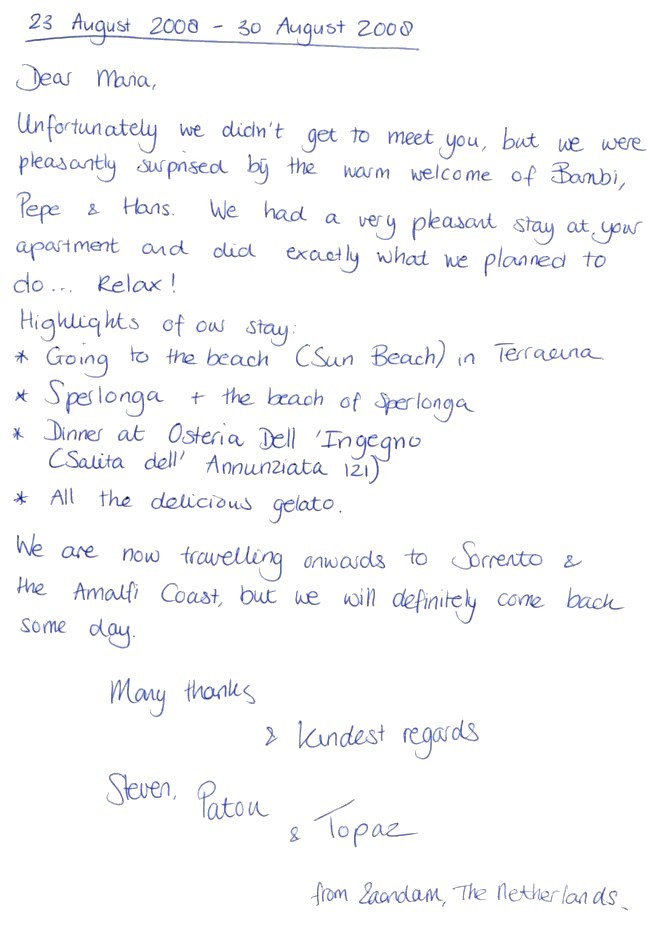 23 August 2008 - 30 August 2008
Dear Maria,
Unfortunately we didn't get to meet you, but we were
pleasantly surprised by the warm welcome of Bambi,
Pepe & Hans. We had a very pleasant stay at your
apartment and did exactly what we planned to
do... Relax!
Highlights of our stay:
* Going to the beach (Sun Beach) in Terracina
* Sperlonga + the beach of Sperlonga
* Dinner at Osteria Dell 'Ingegno
(Salita dell' Annunziata 121)
* All the delicious gelato.
We are now travelling onwards to Sorrento &
the Amalfi Coast, but we will definitely come back
some day.
Many thanks
& Kindest regards
Steven, Patou
& Topaz
from Zaandam, The Netherlands.